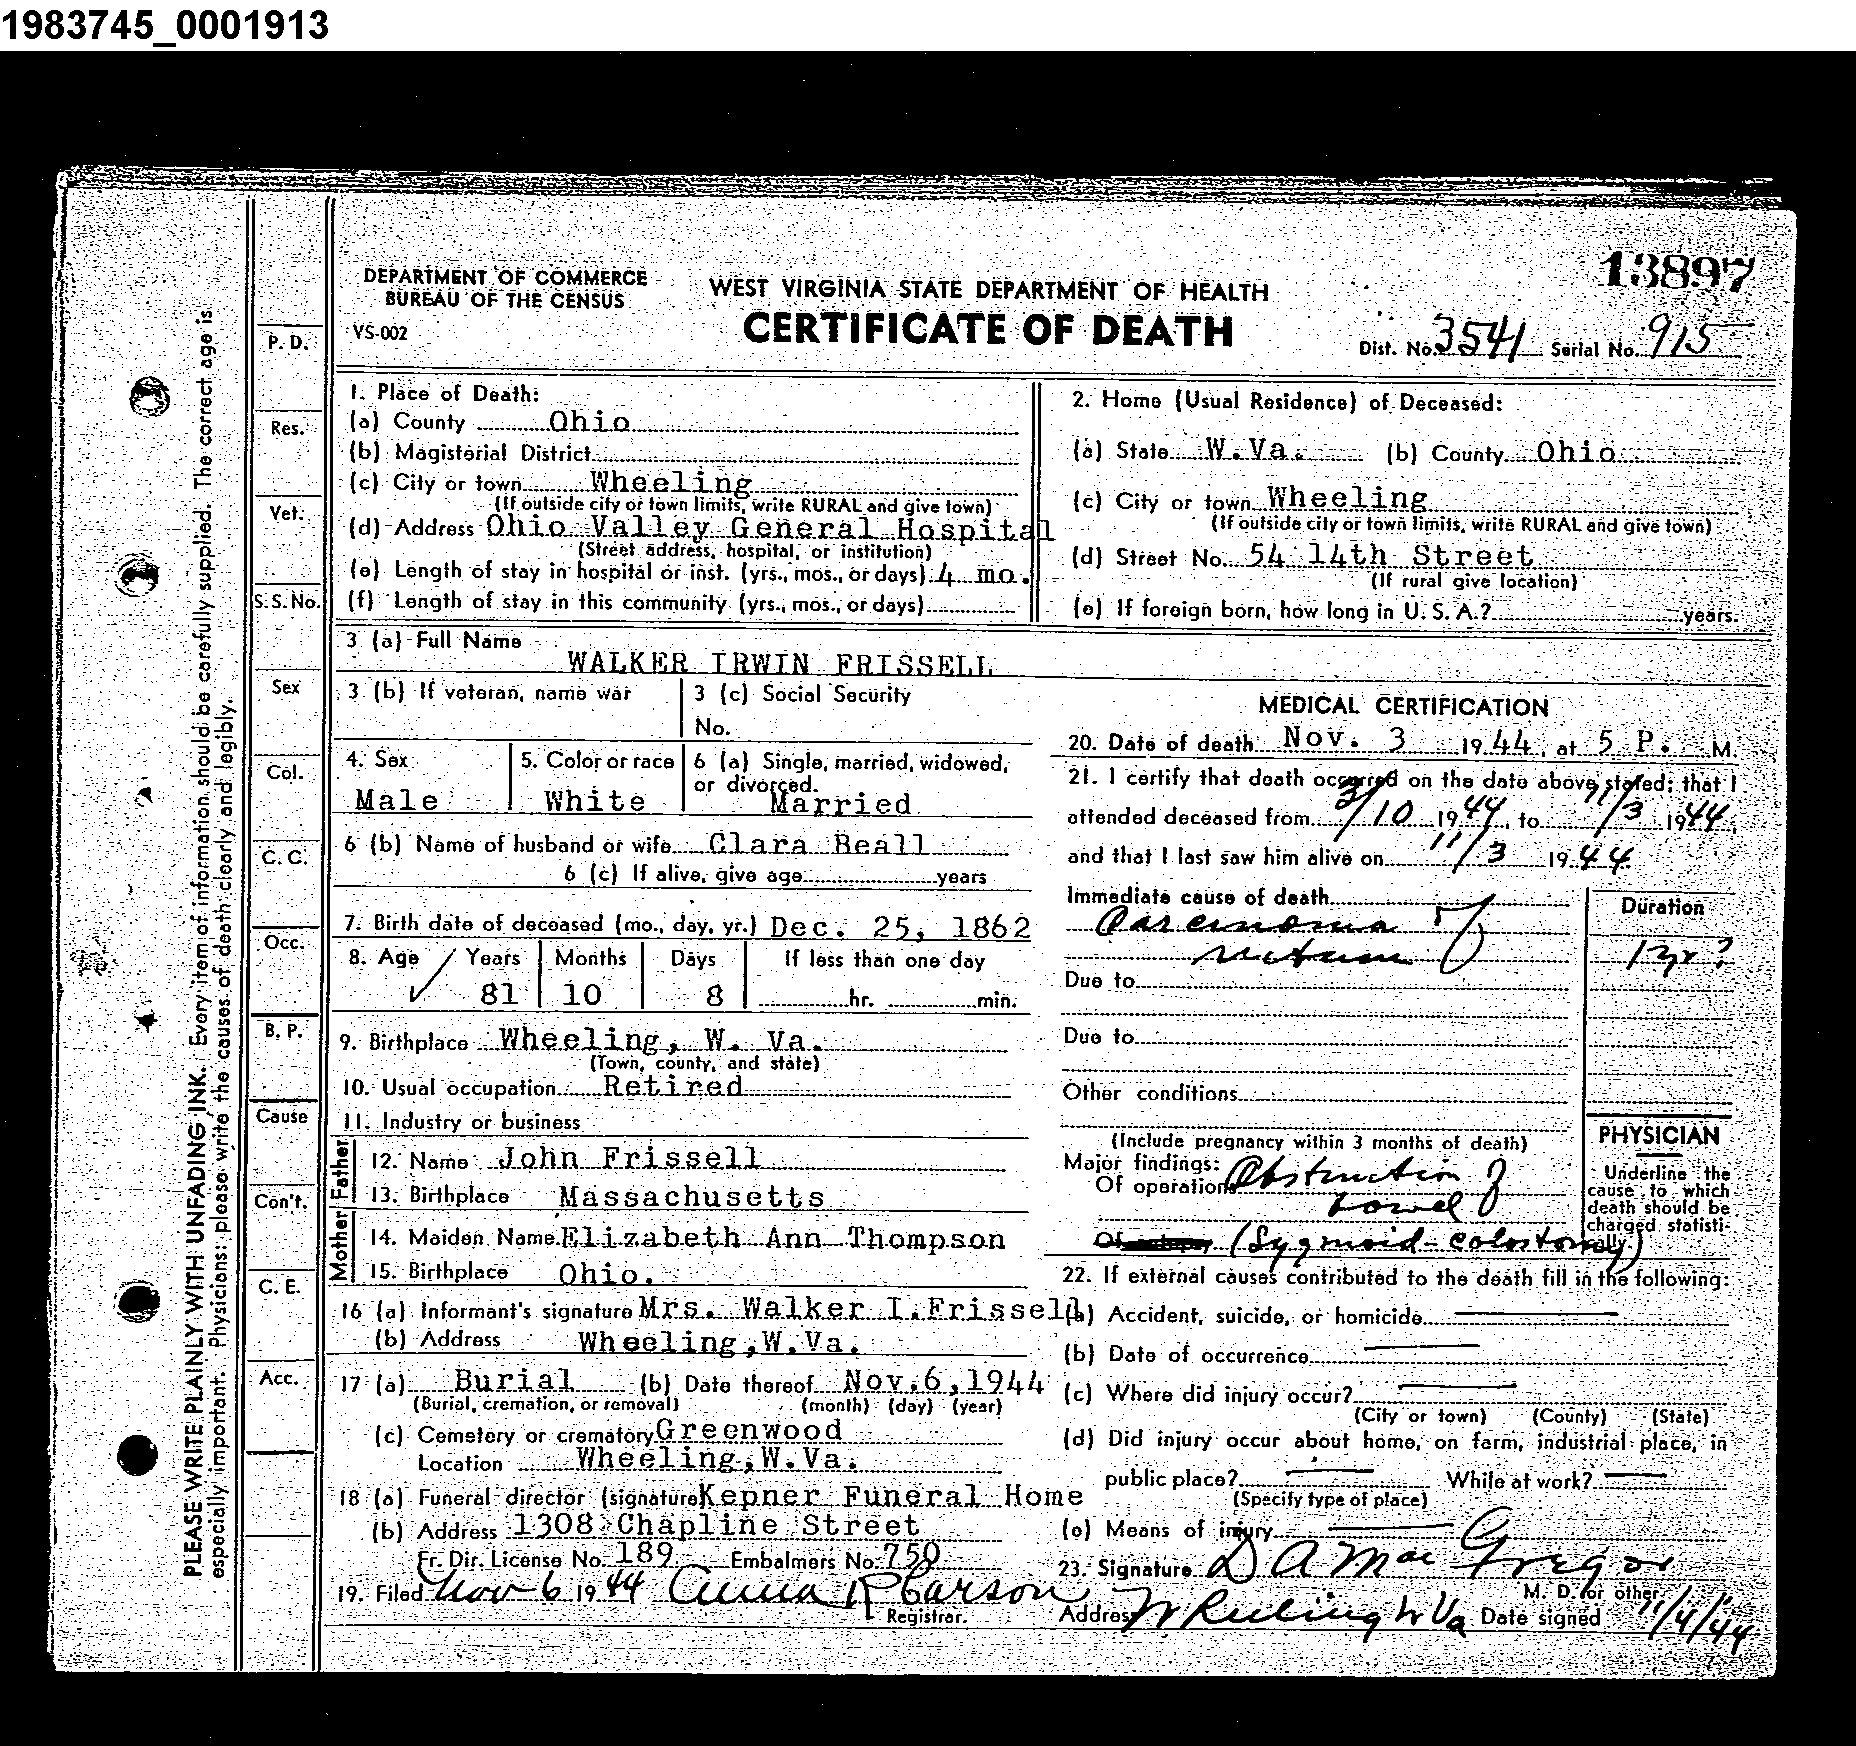 1983745_0001913
13897
DEPARTMENT OF COMMERCE
BUREAU OF THE CENSUS
VS-002
WEST VIRGINIA STATE DEPARTMENT OF HEALTH
CERTIFICATE OF DEATH
Dist. No. 3541 Serial No. 915
PLEASE WRITE PLAINLY WITH UNFADING INK. Every item of information should be carefully supplied. The correct age is
especially important. Physicians: please write the causes of death clearly and legibly.
P. D.
Res.
Vet.
S. S. No.
Sex
Col.
C. C.
Occ.
B. P.
Cause
Con't.
C. E.
Acc.
1. Place of Death:
(a) County Ohio
(b) Magisterial District
(c) City or town Wheeling
(If outside city or town limits, write RURAL and give town)
(d) Address Ohio Valley General Hospital
(Street address, hospital, or institution)
(e) Length of stay in hospital or inst. (yrs., mos., or days) 4 mo.
(f) Length of stay in this community (yrs., mos., or days)
2. Home (Usual Residence) of Deceased:
(a) State W.Va. (b) County Ohio
(c) City or town Wheeling
(If outside city or town limits, write RURAL and give town)
(d) Street No. 54 14th Street
(If rural give location)
(e) If foreign born, how long in U. S. A.? years.
3 (a) Full Name
WALKER IRWIN FRISSELL
3 (b) If veteran, name war
3 (c) Social Security
No.
4. Sex
Male
5. Color or race
White
6 (a) Single, married, widowed,
or divorced.
Married
6 (b) Name of husband or wife Clara Beall
6 (c) If alive, give age years
7. Birth date of deceased (mo., day, yr.) Dec. 25, 1862
8. Age Years Months Days If less than one day
✓ 81 10 8 hr. min.
9. Birthplace Wheeling, W. Va.
(Town, county, and state)
10. Usual occupation Retired
11. Industry or business
Father
12. Name John Frissell
13. Birthplace Massachusetts
Mother
14. Maiden Name Elizabeth Ann Thompson
15. Birthplace Ohio.
16 (a) Informant's signature Mrs. Walker I.Frissell
(b) Address Wheeling,W.Va.
17 (a) Burial (b) Date thereof Nov.6,1944
(Burial, cremation, or removal) (month) (day) (year)
(c) Cemetery or crematory Greenwood
Location Wheeling,W.Va.
18 (a) Funeral director (signature Kepner Funeral Home
(b) Address 1308 Chapline Street
Fr. Dir. License No. 189 Embalmers No. 750
19. Filed Nov 6 1944 Anna R Carson
Registrar.
MEDICAL CERTIFICATION
20. Date of death Nov. 3 1944, at 5 P. M.
21. I certify that death occurred on the date above stated; that I
attended deceased from /10 1944, to 11/3 1944,
and that I last saw him alive on 11/3 1944
Immediate cause of death
Carcinoma of
rectum
Duration
1 yr?
Due to
Due to
Other conditions
(Include pregnancy within 3 months of death)
Major findings:
Of operations Obstruction of
bowel
(Sygmoid-colostomy)
PHYSICIAN
Underline the
cause to which
death should be
charged statisti-
cally.
22. If external causes contributed to the death fill in the following:
(a) Accident, suicide, or homicide
(b) Date of occurrence
(c) Where did injury occur?
(City or town) (County) (State)
(d) Did injury occur about home, on farm, industrial place, in
public place? While at work?
(Specify type of place)
(e) Means of injury
23. Signature D A MacGregor
M. D. or other
Address Wheeling W Va Date signed 11/4/44